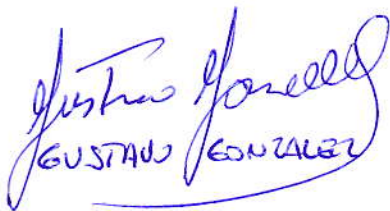 Gustavo Gonzalez
GUSTAVO GONZALEZ